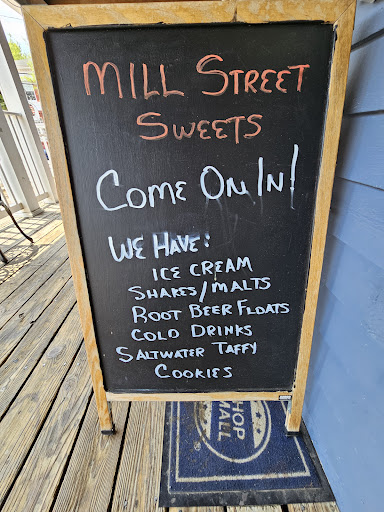 MILL STREET
SWEETS
COME ON IN!
WE HAVE:
ICE CREAM
SHAKES/MALTS
ROOT BEER FLOATS
COLD DRINKS
SALTWATER TAFFY
COOKIES
SHOP
SMALL